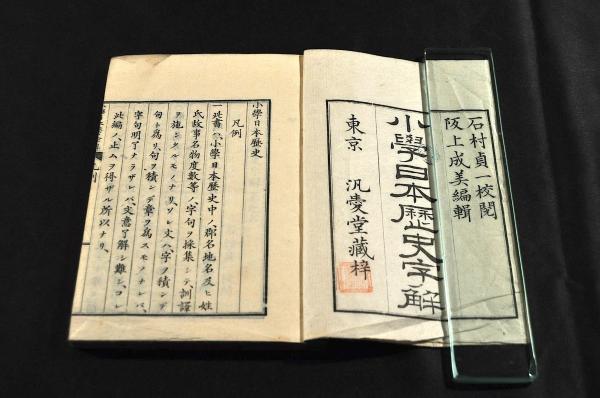 石村貞一校閲
阪上成美編輯
小學日本歷史字解
東京 汎愛堂藏梓
小學日本歷史
凡例
一此書ハ小學日本歷史中ノ郡名地名及ヒ姓
氏故事名物度數等ノ字句ヲ採集シテ訓譯
ヲ施シタルモノナリソレ丈ハ字ヲ積ンデ
句ト爲リ句ヲ積ンデ章ヲ爲スモノナレバ
字句明了ナラザレバ文意了解シ難シコレ
此編ノ止ムヲ得ザル所以ナリ